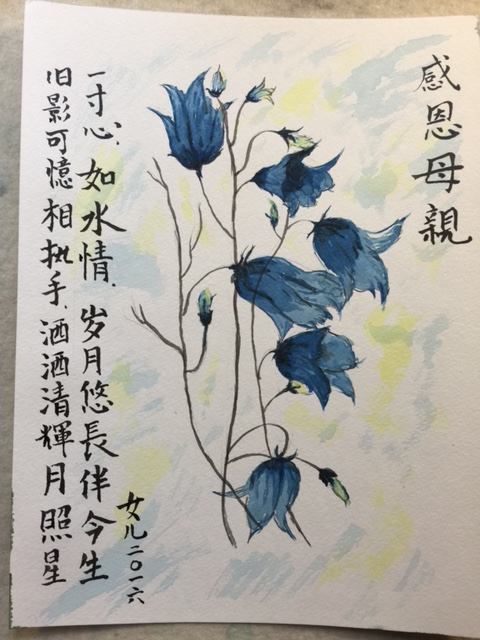 感恩母親
一寸心,如水情.岁月悠長伴今生
旧影可憶相执手.洒洒清輝月照星
女儿二〇一六